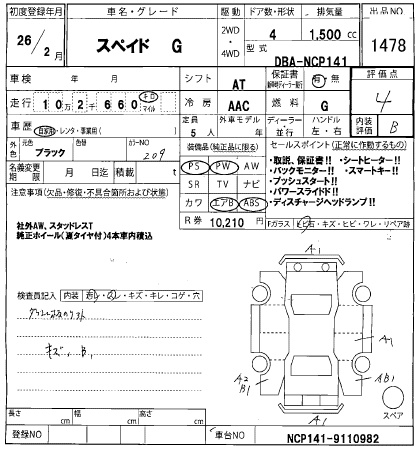 初度登録年月 車名・グレード 駆動 ドア数・形状 排気量 出品NO
26/2月 スペイド G 2WD・4WD 4 1,500 cc 1478
型式 DBA-NCP141
車検 年 月 シフト AT 保証書 有・無 評価点
走行 10万2千660 キロ マイル 冷房 AAC 燃料 G 4
車歴 自家用・レンタ・事業用( ) 定員 5人 外車モデル 年 ディーラー・並行 ハンドル 左・右 内装評価 B
外色 元色 ブラック 色替 カラーNO 209
装備品(純正品に限る) セールスポイント(正常に作動するもの)
名義変更期限 月 日迄 積載 t
PS PW AW
SR TV ナビ
カワ エアB ABS
R券 10,210 円
・取説、保証書!!・シートヒーター!!
・バックモニター!!・スマートキー!!
・プッシュスタート!!
・パワースライド!!
・ディスチャージヘッドランプ!!
注意事項(欠品・修復・不具合箇所および状態)
社外AW、スタッドレスT
純正ホイール(夏タイヤ付)4本車内積込
Fガラス ヒビ石・キズ・ヒビ・ワレ・リペア跡
検査員記入 内装
・キズ・キレ・コゲ・穴
キズ、B1
A1
A1
A2
B1
AB1
A1
スペア
長さ cm 幅 cm 高さ cm
登録NO 車台NO NCP141-9110982